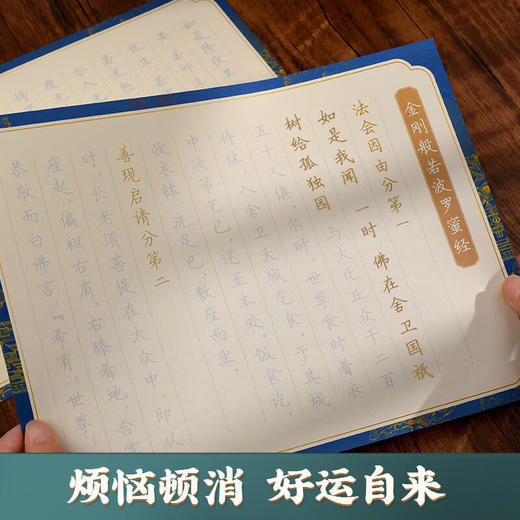 金刚般若波罗蜜经
法会因由分第一
如是我闻 一时 佛在舍卫国祇
树给孤独园 与大比丘众千二百
五十人俱。尔时，世尊食时着衣
持钵，入舍卫大城乞食。于其城
中次第乞已，还至本处。饭食讫，
收衣钵，洗足已，敷座而坐。
善现启请分第二
时，长老须菩提在大众中，即从
座起，偏袒右肩，右膝着地，合掌
恭敬而白佛言：『希有！世尊！
烦恼顿消 好运自来